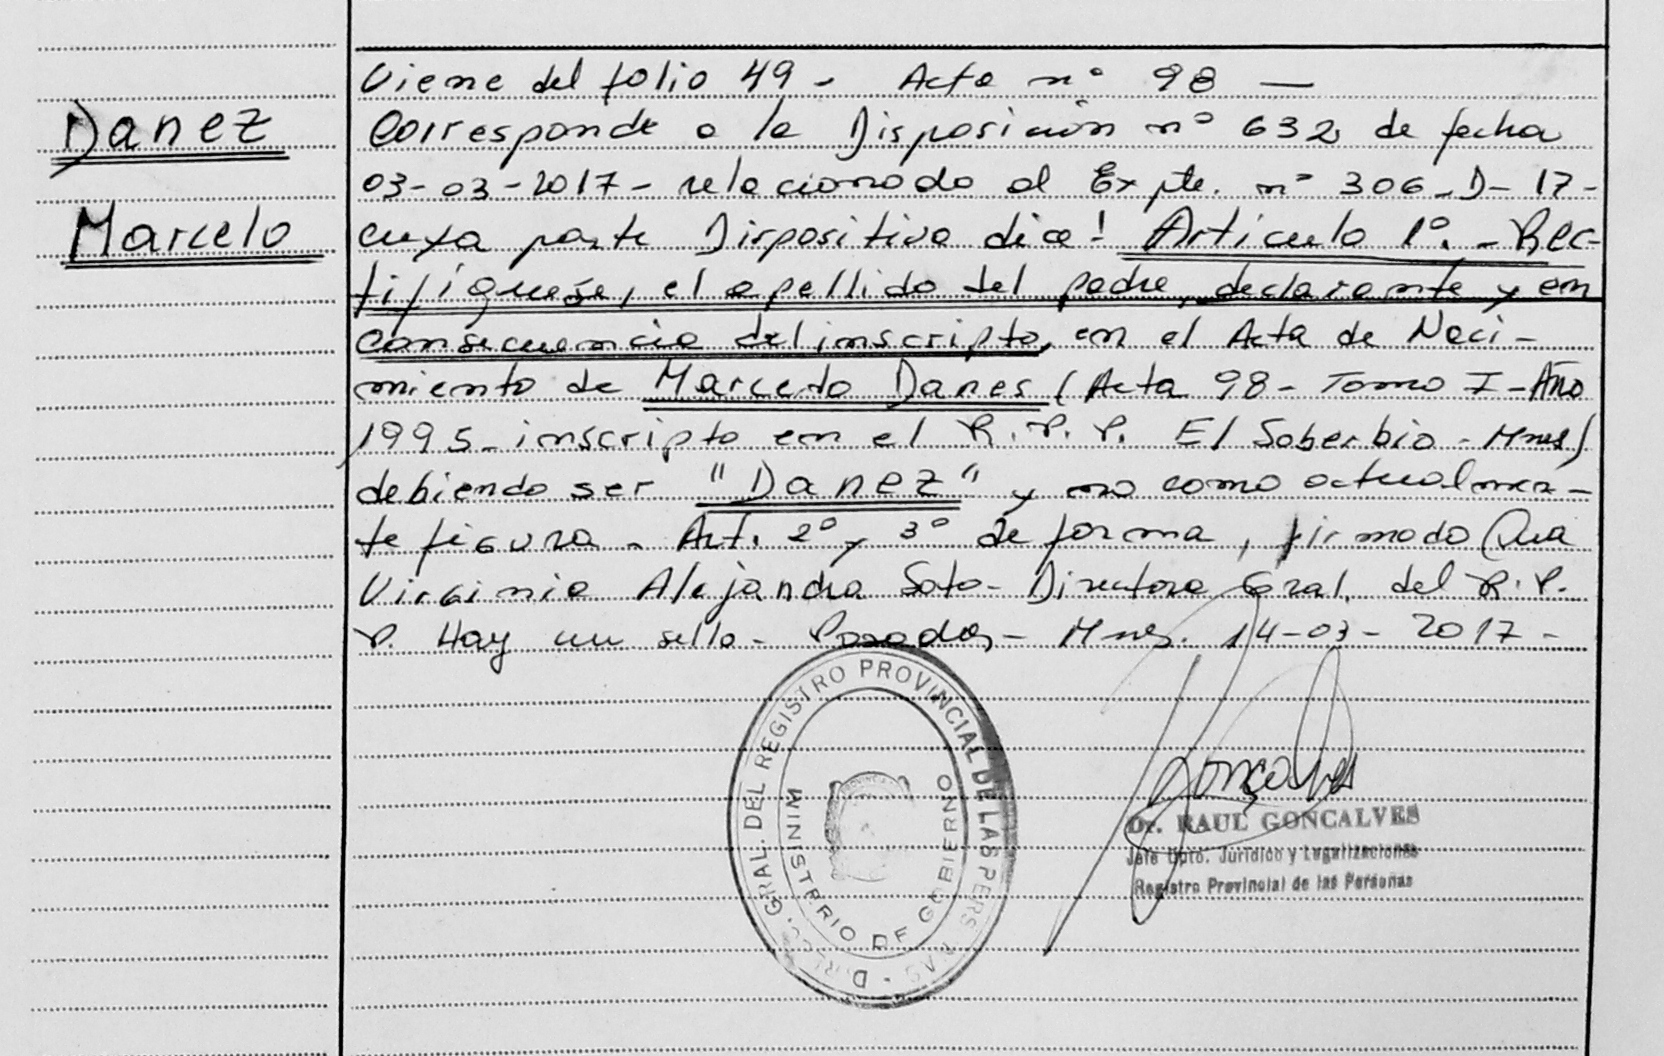 Danez
Marcelo
Viene del folio 49 - Acta nº 98 —
Corresponde a la Disposición nº 632 de fecha
03-03-2017- relacionado al Expte. nº 306-D-17-
cuya parte Dispositiva dice: Artículo 1º. - Rec-
tifíquese, el apellido del padre, declarante y en
consecuencia del inscripto, en el Acta de Naci-
miento de Marcelo Danes (Acta 98- Tomo I-Año
1995- inscripto en el R.P.P. El Soberbio - Mnes)
debiendo ser "Danez" y no como actualmen-
te figura. Art. 2º y 3º de forma, firmado Dra
Virginia Alejandra Soto- Directora Gral. del R.P.
P. Hay un sello- Posadas- Mnes. 14-03-2017-
DIRECC. GRAL. DEL REGISTRO PROVINCIAL DE LAS PERSONAS -
MINISTERIO DE GOBIERNO
Goncalves
Dr. RAUL GONCALVES
Jefe Dpto. Jurídico y Legalizaciones
Registro Provincial de las Personas